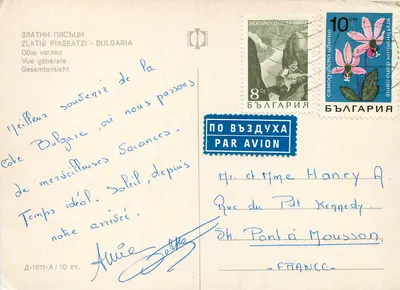 ЗЛАТНИ ПЯСЪЦИ
ZLATNI PIASSATZI - BULGARIA
Общ изглед
Vue générale
Gesamtansicht
8
БЪЛГАРИЯ
10 СТ.
БЪЛГАРИЯ
ПО ВЪЗДУХА
PAR AVION
Meilleur souvenir de la
Côte Bulgare où nous passons
de merveilleuses vacances.
Temps idéal. Soleil, depuis
notre arrivée.
Annie
Mr et Mme Henry A.
Rue du Pdt Kennedy.
54 Pont à Mousson.
-FRANCE-
Д-1611-А / 10 ст.